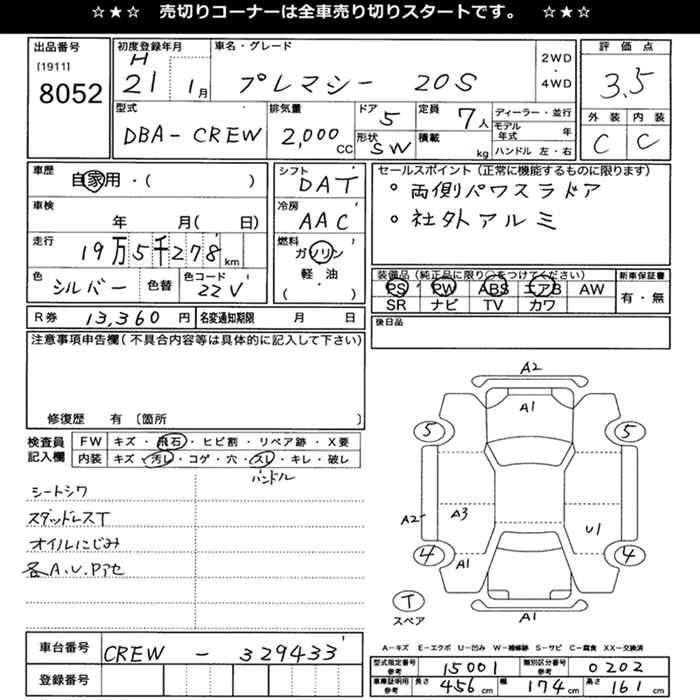 ☆★☆ 売切りコーナーは全車売り切りスタートです。 ☆★☆
出品番号
[1911]
8052
初度登録年月
H
21 1月
車名・グレード
プレマシー 20S
2WD
・
4WD
評価点
3.5
外装 内装
C C
型式
DBA-CREW
排気量
2,000 CC
ドア 5
形状 SW
定員 7人
積載 kg
ディーラー・並行
モデル年式 年
ハンドル 左・右
車歴
自家用・( )
車検
年 月( 日)
走行
19万5千278km
色
シルバー
色替
色コード
22V
シフト
DAT
冷房
AAC
燃料
ガソリン
軽・油
( ・ )
セールスポイント(正常に機能するものに限ります)
○両側パワスラドア
○社外アルミ
装備品(純正品に限り○をつけてください)
PS PW ABS エアB AW
SR ナビ TV カワ
新車保証書
有・無
R券 13,360円
名変通知期限 月 日
後日品
注意事項申告欄(不具合内容等は具体的に記入して下さい)
修復歴 有 〔箇所 〕
検査員記入欄
FW キズ・飛石・ヒビ割・リペア跡・X要
内装 キズ・汚レ・コゲ・穴・スレ・キレ・破レ
ハンドル
シートシワ
スタッドレスT
オイルにじみ
各A.U.Pアセ
A2
A1
5 5
A2 A3 U1
4 A1 4
T
スペア
A1
A-キズ E-エクボ U-凹み W-補修跡 S-サビ C-腐食 XX-交換済
車台番号 CREW - 329433
登録番号
型式指定番号 参考 15001
類別区分番号 参考 0202
車庫証明用 参考 長さ 456cm 幅 174cm 高さ 161cm